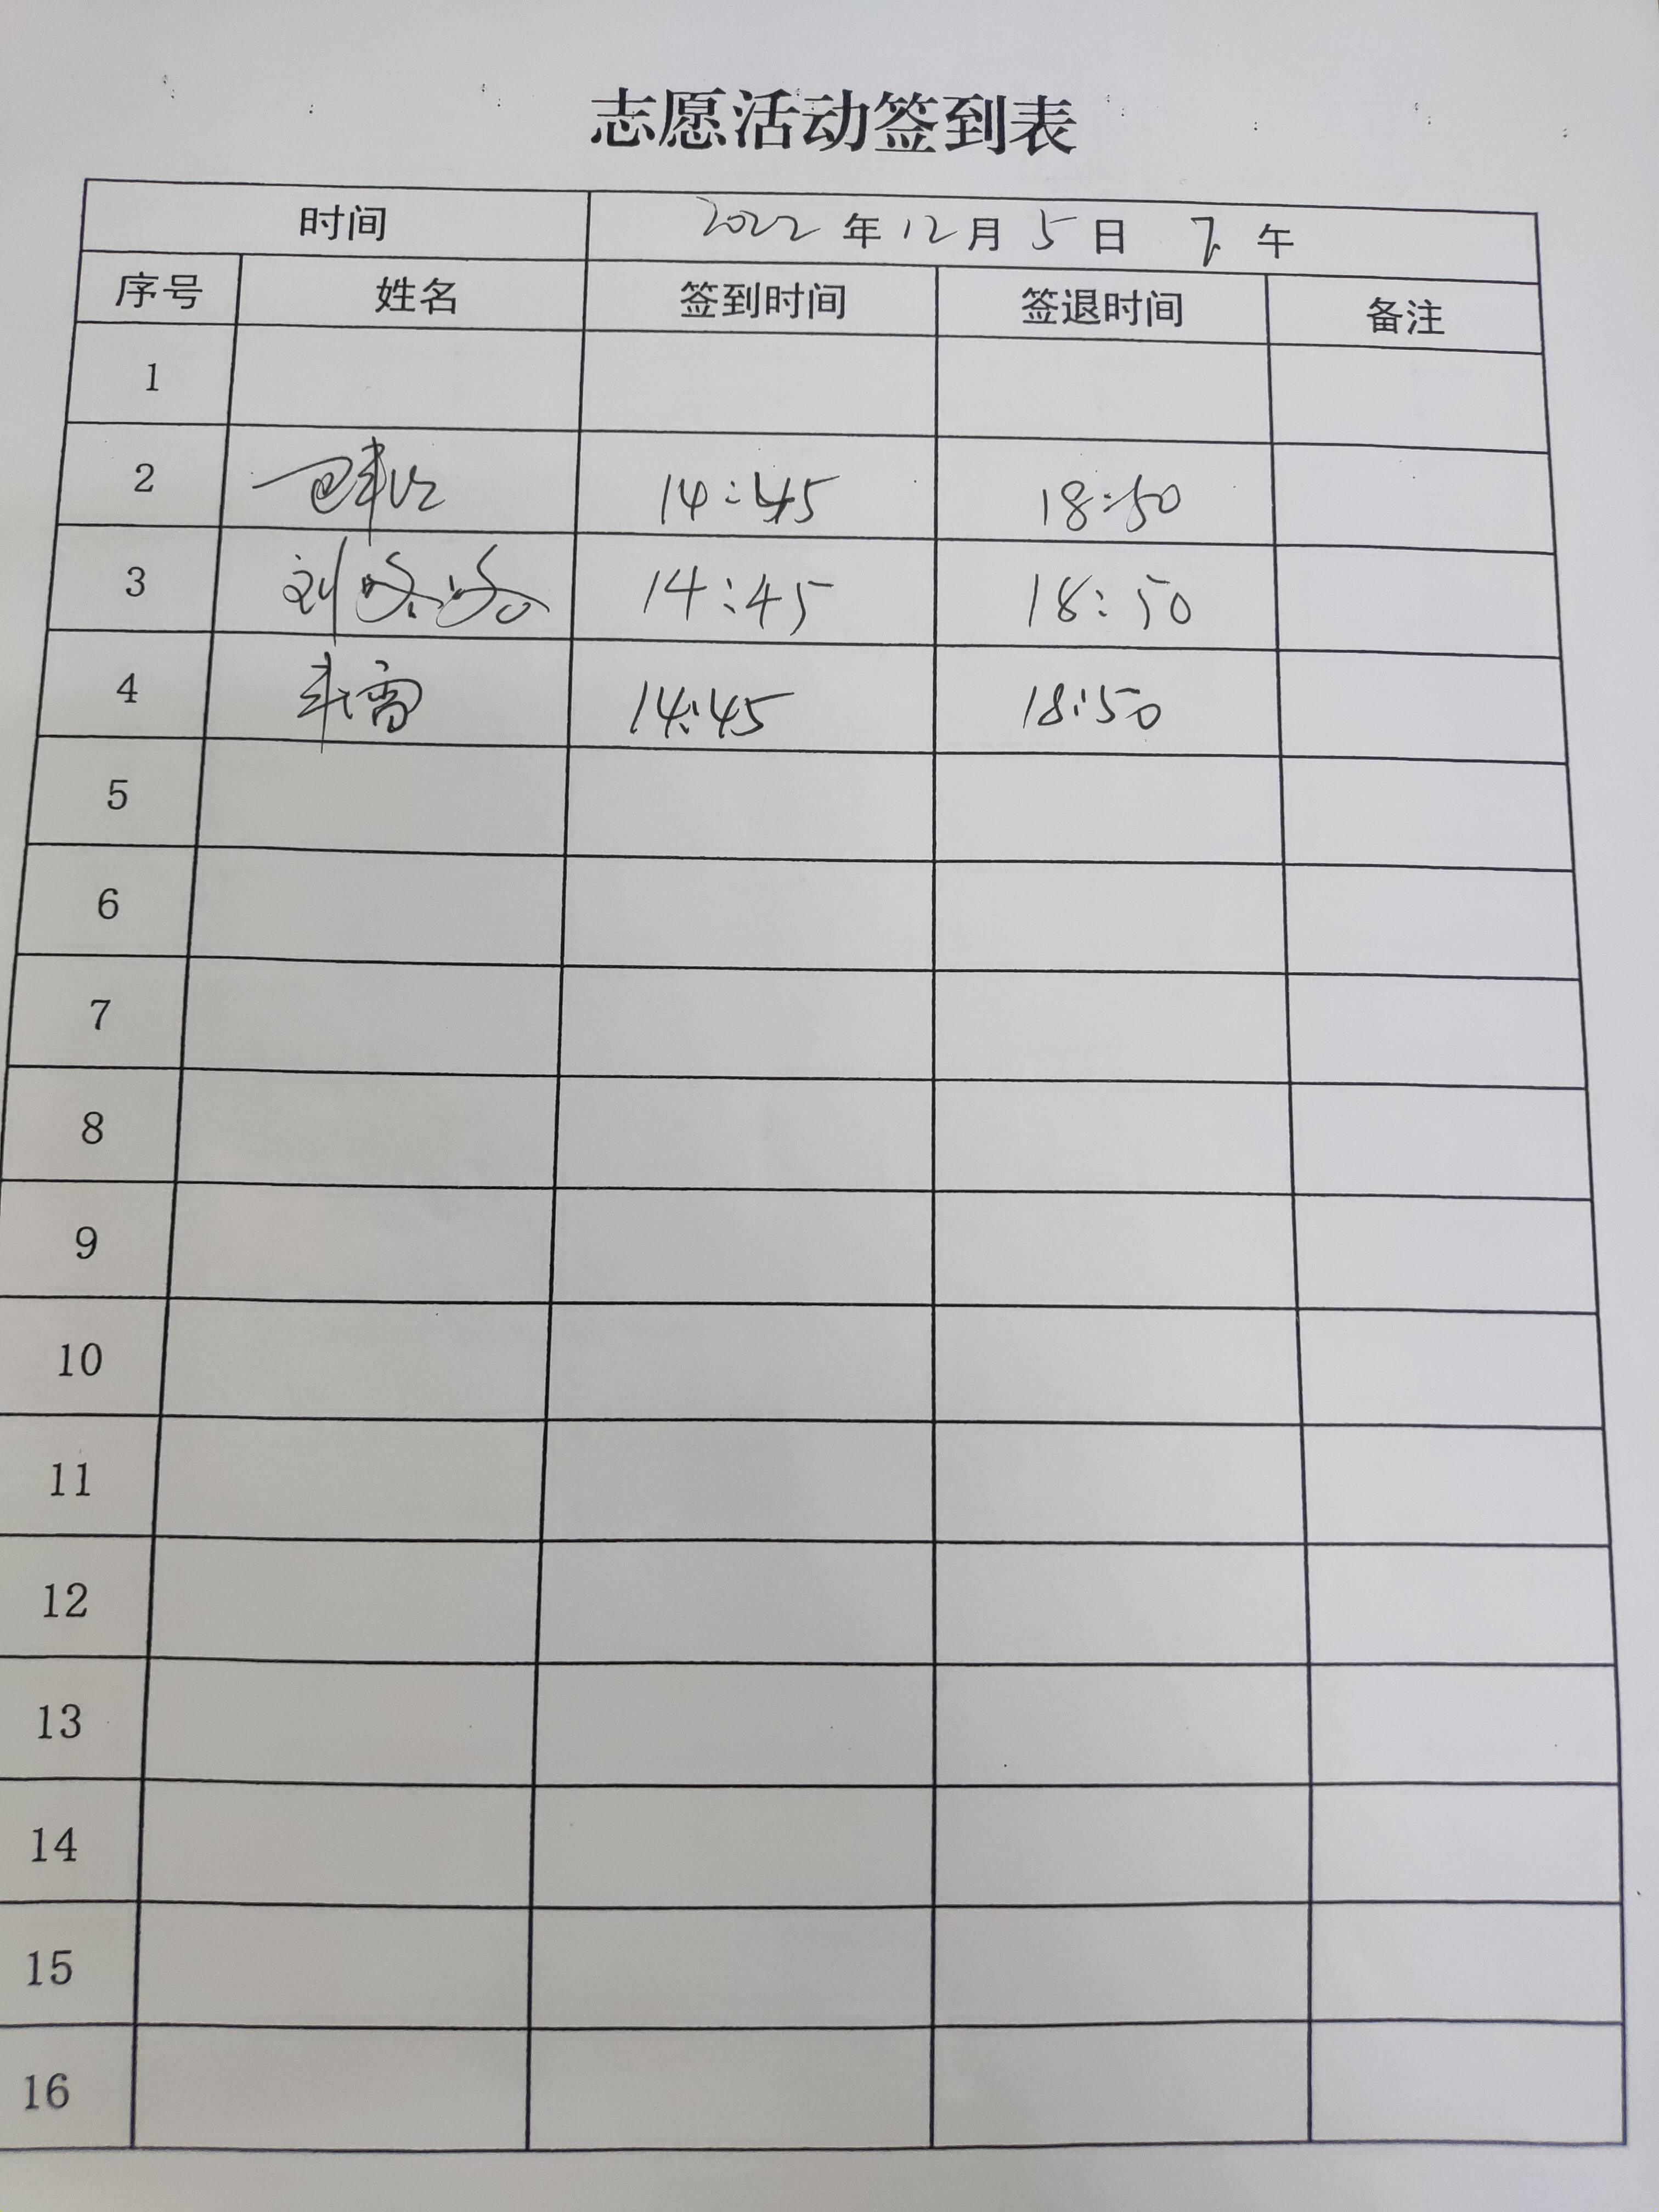 志愿活动签到表
时间 2022年12月5日 下午
序号 姓名 签到时间 签退时间 备注
1
2 14:45 18:50
3 刘 14:45 18:50
4 14:45 18:50
5
6
7
8
9
10
11
12
13
14
15
16